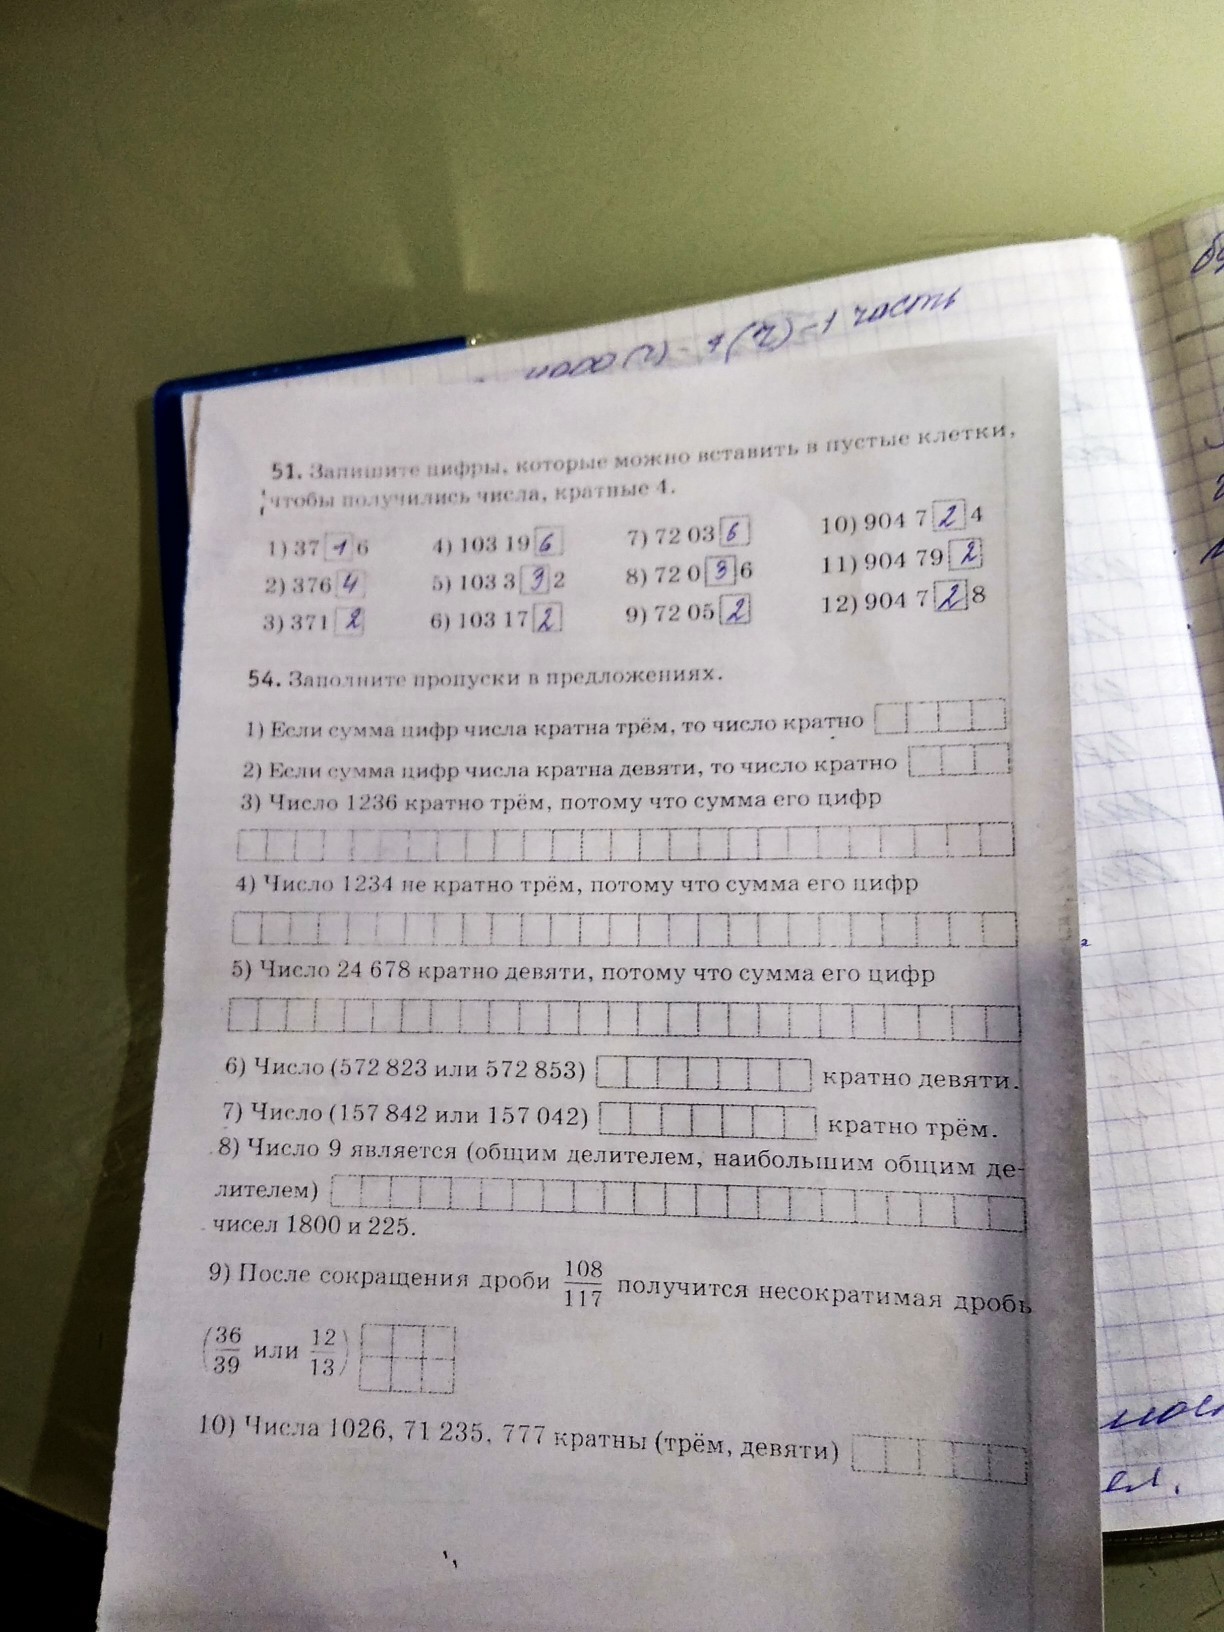 (ч) - 1 часть
51. Запишите цифры, которые можно вставить в пустые клетки,
чтобы получились числа, кратные 4.
1) 37 1 6 4) 103 19 6 7) 72 03 6 10) 904 7 2 4
2) 376 4 5) 103 3 3 2 8) 72 0 3 6 11) 904 79 2
3) 371 2 6) 103 17 2 9) 72 05 2 12) 904 7 2 8
54. Заполните пропуски в предложениях.
1) Если сумма цифр числа кратна трём, то число кратно
2) Если сумма цифр числа кратна девяти, то число кратно
3) Число 1236 кратно трём, потому что сумма его цифр
4) Число 1234 не кратно трём, потому что сумма его цифр
5) Число 24 678 кратно девяти, потому что сумма его цифр
6) Число (572 823 или 572 853) кратно девяти.
7) Число (157 842 или 157 042) кратно трём.
8) Число 9 является (общим делителем, наибольшим общим де-
лителем)
чисел 1800 и 225.
9) После сокращения дроби 108/117 получится несократимая дробь
(36/39 или 12/13)
10) Числа 1026, 71 235, 777 кратны (трём, девяти)
ел.